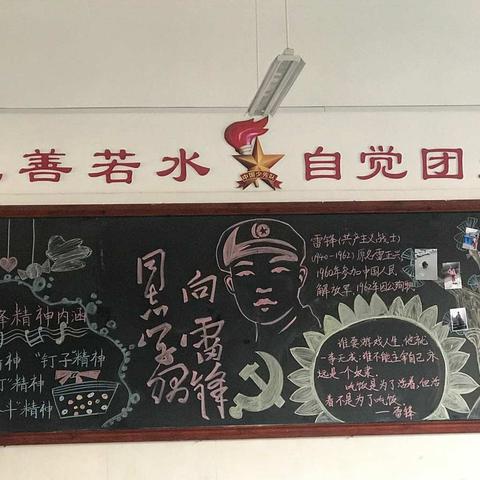 善若水
中国少先队
自觉团
锋精神内涵
精神 "钉子"精神
丁"精神
斗"精神
向雷锋
同志学习
雷锋(共产主义战士)
1940-1962,原名雷正兴
1960年参加中国人民
解放军,1962年因公殉职
谁要游戏人生,他就
一事无成;谁不能主宰自己,永
远是个奴隶。
吃饭是为了活着,但活
着不是为了吃饭。
——雷锋